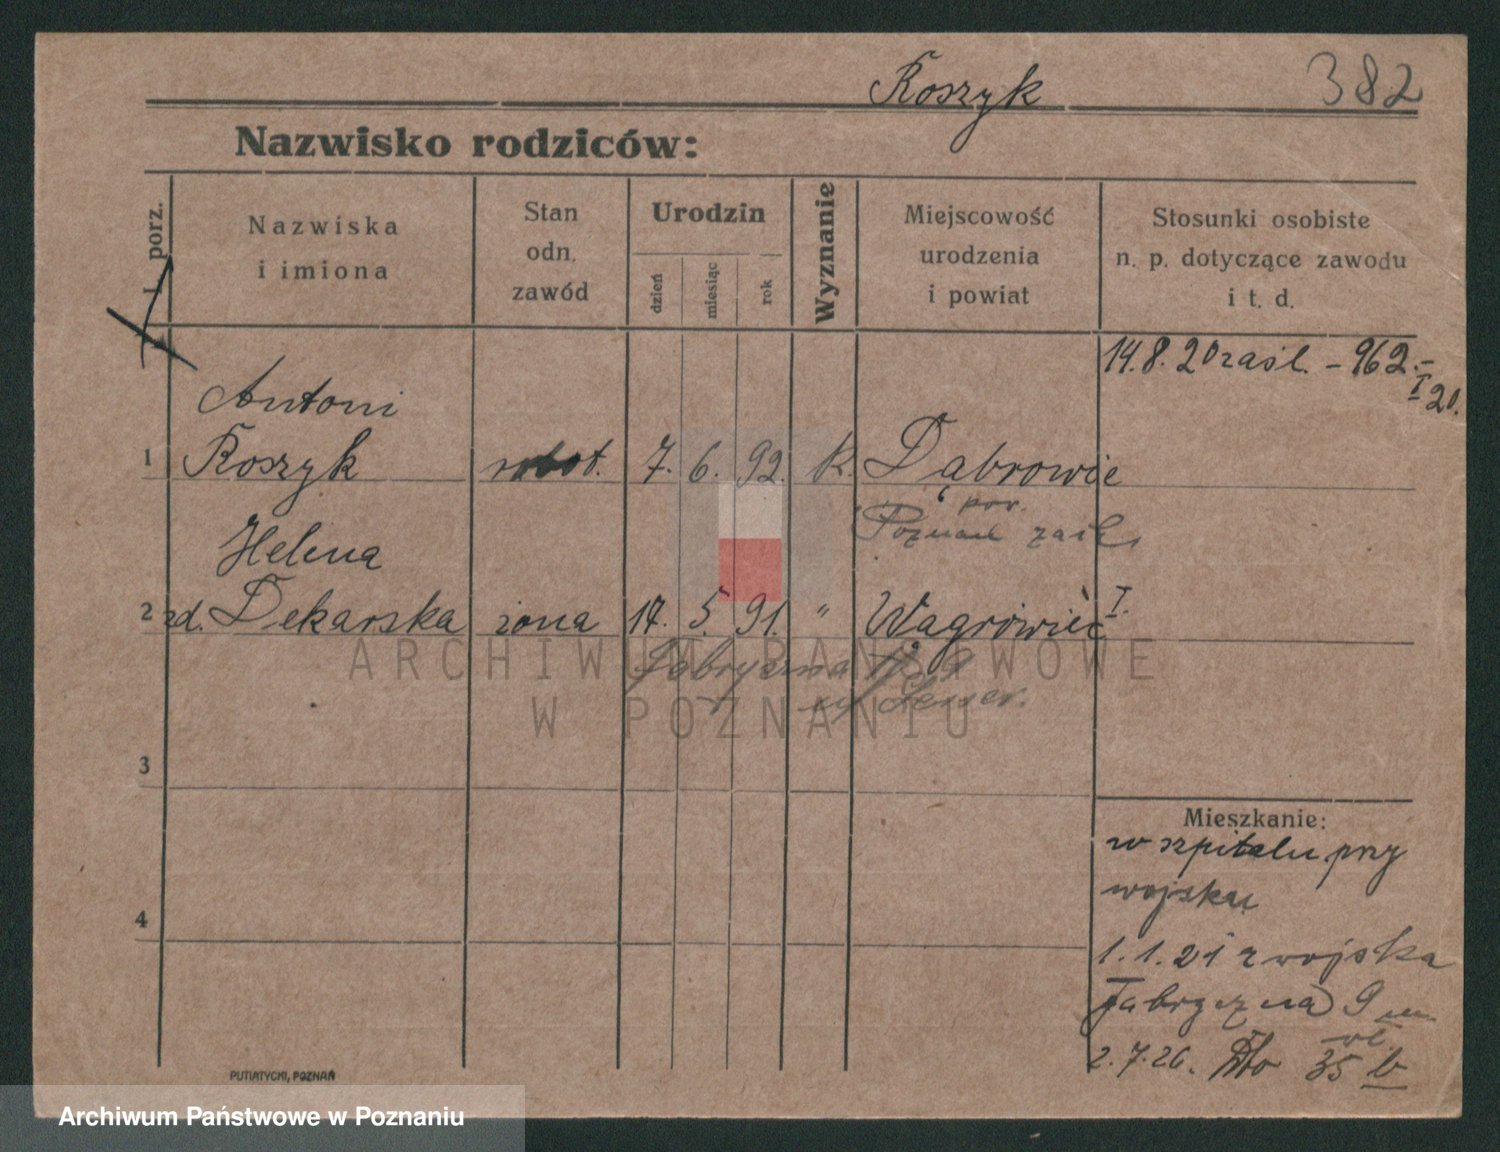 Koszyk 382
Nazwisko rodziców:
porz.
Nazwiska
i imiona
Stan
odn.
zawód
Urodzin
dzień
miesiąc
rok
Wyznanie
Miejscowość
urodzenia
i powiat
Stosunki osobiste
n. p. dotyczące zawodu
i t. d.
14.8.20 zaśl. - 962.-
I 20.
Antoni
1 Koszyk robot. 7. 6. 92. k. Dąbrowie
pow.
Poznań zaśl.
Helena
2 zd. Dekarska żona 17. 5. 91. " Wągrówiec I.
Fabryczna 9
3
Mieszkanie:
w szpitalu przy
wojsku
4
1.1.21 z wojska
Fabryczna 9
2.7.26. Dto 35 b
PUTIATYCKI, POZNAŃ
ARCHIWUM PAŃSTWOWE
W POZNANIU
Archiwum Państwowe w Poznaniu